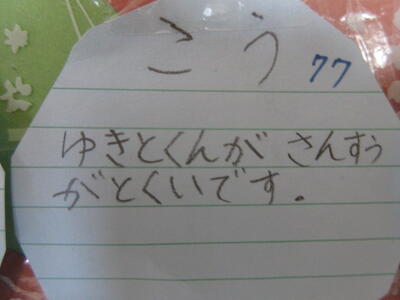 こう 77
ゆきとくんが さんすう
がとくいです.